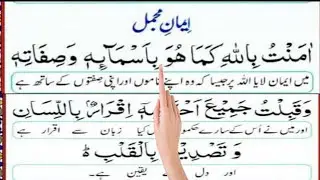 اِیمانِ مجمل
اٰمَنْتُ بِاللّٰهِ كَمَا هُوَ بِاَسْمَآئِهٖ وَصِفَاتِهٖ
میں ایمان لایا اللہ پر جیسا کہ وہ اپنے ناموں اور اپنی صفتوں کے ساتھ ہے
وَقَبِلْتُ جَمِيْعَ اِقْرَارٌۢ بِاللِّسَانِ
اور میں نے اُس کے سارے زبان سے اقرار ہے
وَ تَصْدِيْقٌۢ بِالْقَلْبِ ط
اور دل یقین ہے۔